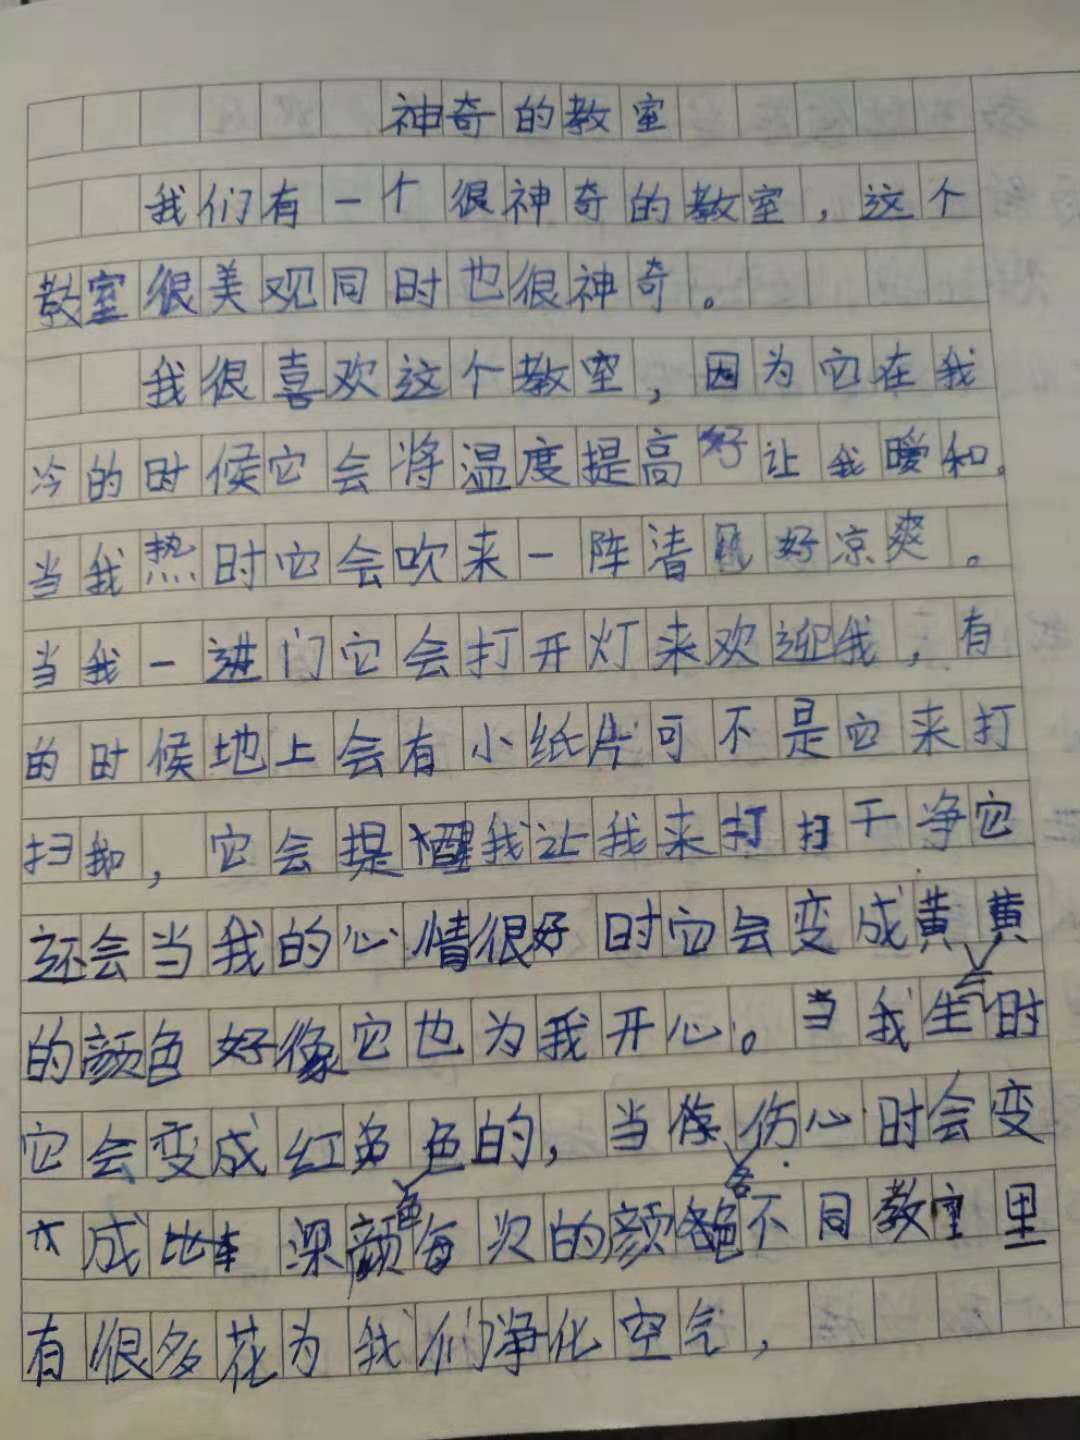 神奇的教室
我们有一个很神奇的教室，这个
教室很美观同时也很神奇。
我很喜欢这个教室，因为它在我
冷的时候它会将温度提高好让我暖和。
当我热时它会吹来一阵清风好凉爽。
当我一进门它会打开灯来欢迎我，有
的时候地上会有小纸片可不是它来打
扫我，它会提醒我让我来打扫干净它
还会当我的心情很好时它会变成黄黄
的颜色好像它也为我开心。当我生时
它会变成红色的，当伤心时会变
成比深颜色每次的颜色各不同教室里
有很多花为我们净化空气，